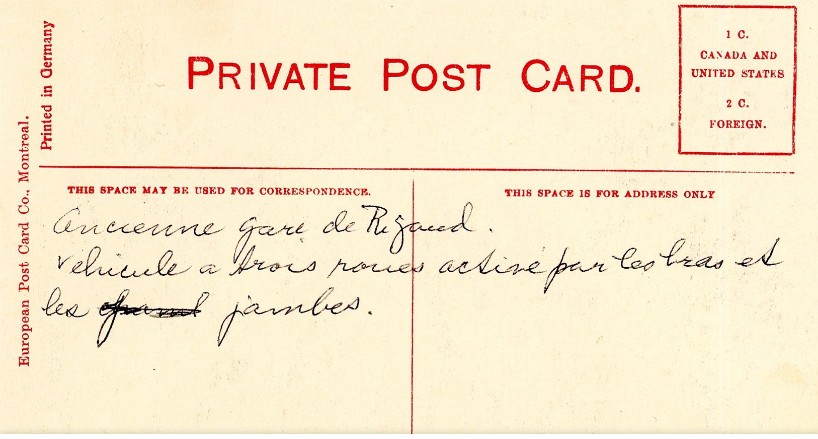 Printed in Germany
European Post Card Co., Montreal.
PRIVATE POST CARD.
1 C.
CANADA AND
UNITED STATES
2 C.
FOREIGN.
THIS SPACE MAY BE USED FOR CORRESPONDENCE.
THIS SPACE IS FOR ADDRESS ONLY
Ancienne gare de Rigaud.
Vehicule a trois roues activé par les bras et
les jambes.